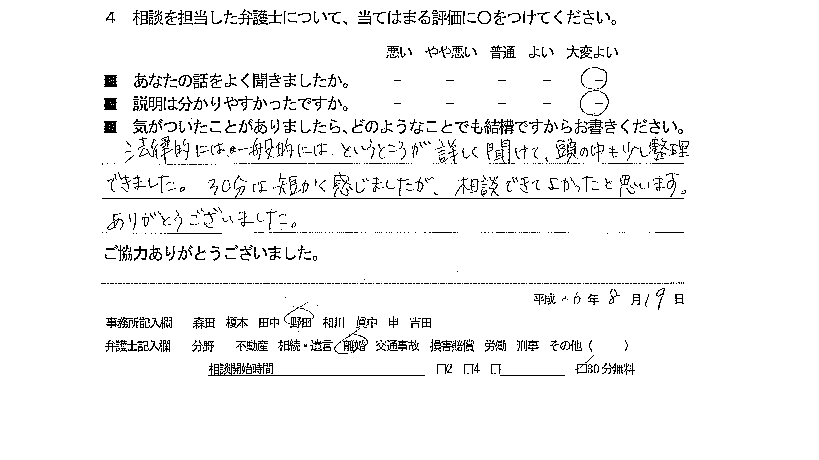 4 相談を担当した弁護士について、当てはまる評価に〇をつけてください。
悪い やや悪い 普通 よい 大変よい
■ あなたの話をよく聞きましたか。 － － － － －
■ 説明は分かりやすかったですか。 － － － － －
■ 気がついたことがありましたら、どのようなことでも結構ですからお書きください。
法律的には、一般的には、というところが詳しく聞けて、頭の中も少し整理
できました。30分は短かく感じましたが、相談できてよかったと思います。
ありがとうございました。
ご協力ありがとうございました。
平成26年8月19日
事務所記入欄 森田 榎本 田中 野田 和川 眞中 申 吉田
弁護士記入欄 分野 不動産 相続・遺言 離婚 交通事故 損害賠償 労働 刑事 その他( )
相談開始時間 □2 □4 □ □30分無料